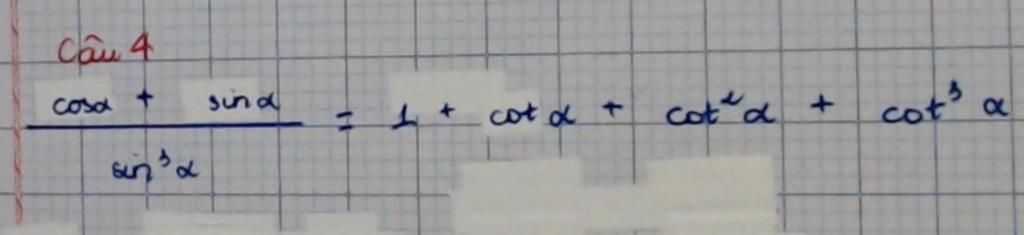 Câu 4
cosα + sinα / sin³α = 1 + cot α + cot²α + cot³ α